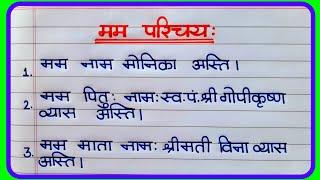 मम परिचयः
1. मम नाम मोनिका अस्ति।
2. मम पितुः नामः स्व. पं. श्री गोपीकृष्ण
व्यास अस्ति।
3. मम माता नामः श्रीमती विना व्यास
अस्ति।